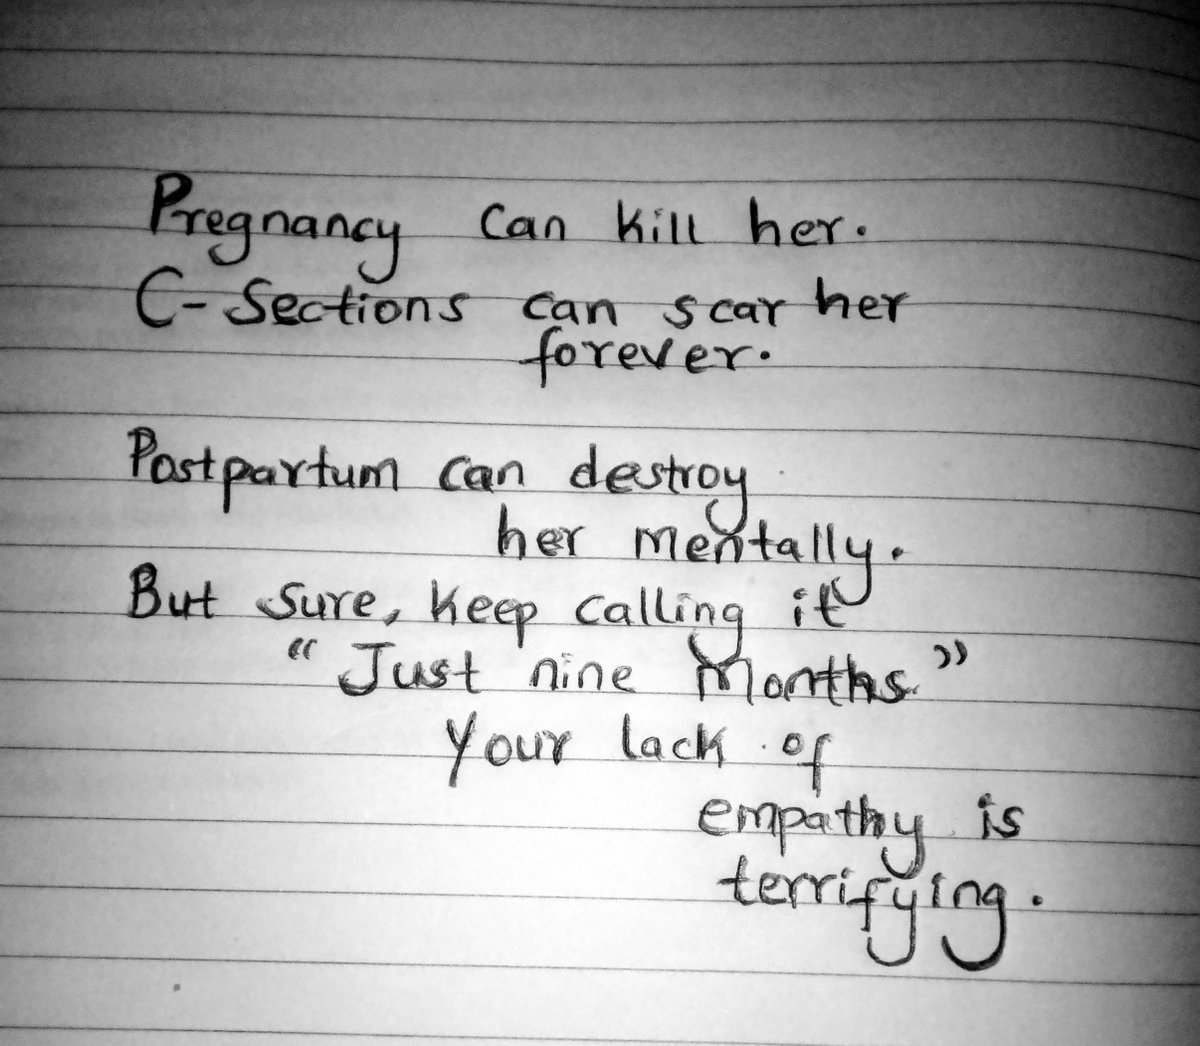 Pregnancy can kill her.
C-Sections can scar her
forever.
Postpartum can destroy
her mentally.
But sure, keep calling it
"Just nine months."
Your lack of
empathy is
terrifying.